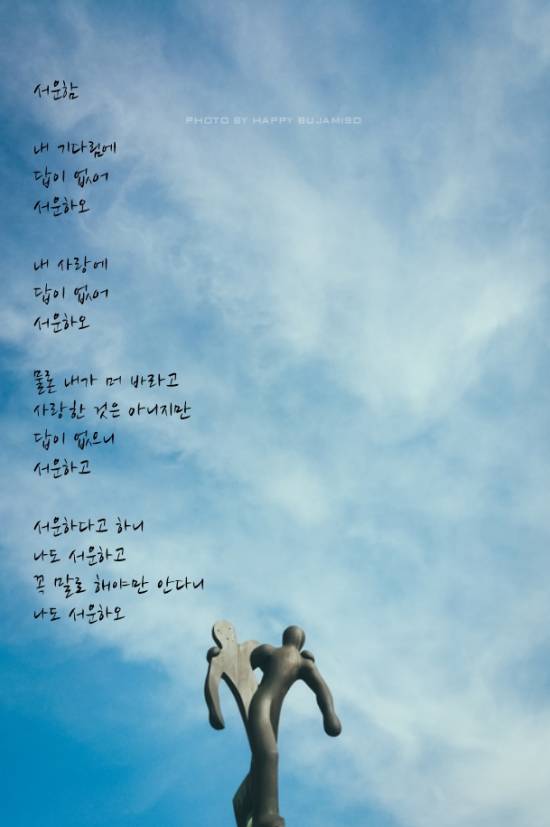 서운함
PHOTO BY HAPPY BUJAMISO
내 기다림에
답이 없어
서운하오
내 사랑에
답이 없어
서운하오
물론 내가 머 바라고
사랑한 것은 아니지만
답이 없으니
서운하고
서운하다고 하니
나도 서운하고
꼭 말로 해야만 안다니
나도 서운하오